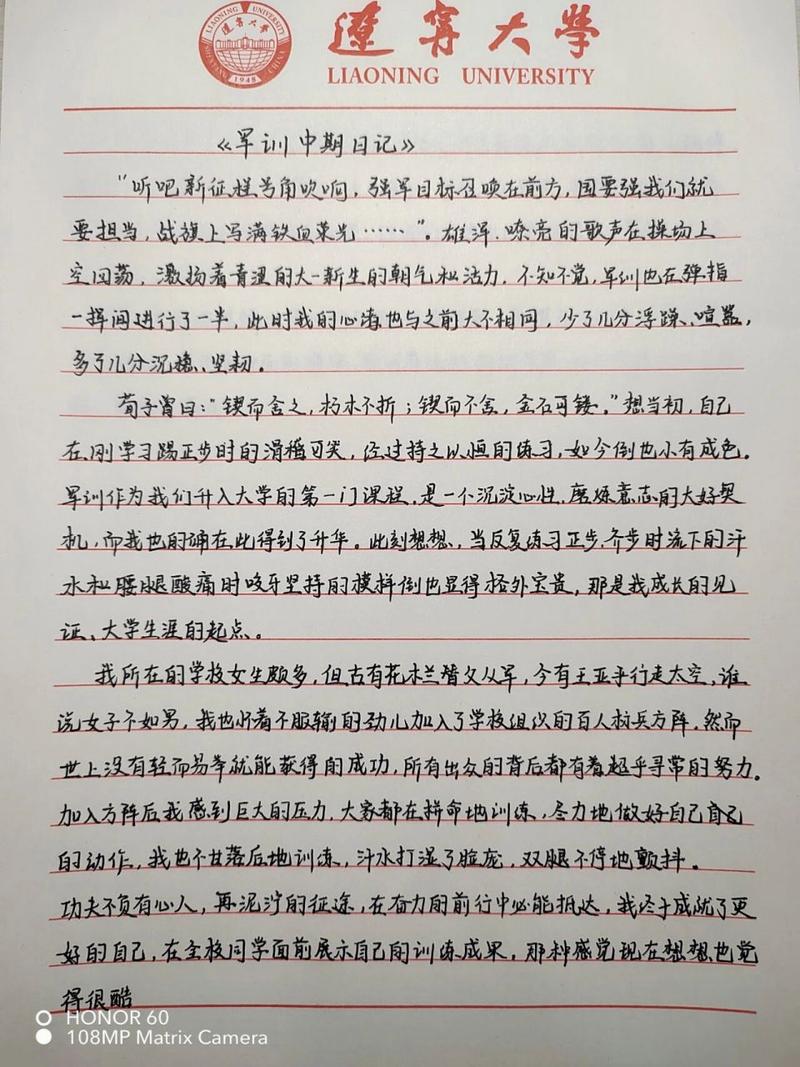 LIAONING UNIVERSITY
遼寧大學
SHENYANG CHINA
1948
遼寧大學
LIAONING UNIVERSITY
《军训中期日记》
“听吧新征程号角吹响，强军目标召唤在前方，国要强我们就
要担当，战旗上写满铁血荣光……”。雄浑、嘹亮的歌声在操场上
空回荡，激扬着青涩的大一新生的朝气和活力，不知不觉，军训也在弹指
一挥间进行了一半，此时我的心绪也与之前大不相同，少了几分浮躁、喧嚣，
多了几分沉稳、坚韧。
荀子曾曰：“锲而舍之，朽木不折；锲而不舍，金石可镂。”想当初，自己
在刚学习踢正步时的滑稽可笑，经过持之以恒的练习，如今倒也小有成色。
军训作为我们升入大学的第一门课程，是一个沉淀心性、磨炼意志的大好契
机，而我也的确在此得到了升华。此刻想想，当反复练习正步、齐步时流下的汗
水和腰腿酸痛时咬牙坚持的模样倒也显得格外宝贵，那是我成长的见
证、大学生涯的起点。
我所在的学校女生颇多，但古有花木兰替父从军，今有王亚平行走太空，谁
说女子不如男，我也怀着不服输的劲儿加入了学校组织的百人标兵方阵。然而
世上没有轻而易举就能获得的成功，所有出众的背后都有着超乎寻常的努力。
加入方阵后我感到巨大的压力，大家都在拼命地训练，尽力地做好自己自己
的动作，我也不甘落后地训练，汗水打湿了脸庞，双腿不停地颤抖。
功夫不负有心人，再泥泞的征途，在奋力的前行中必能抵达，我终于成就了更
好的自己，在全校同学面前展示自己的训练成果，那种感觉现在想想也觉
得很酷
HONOR 60
108MP Matrix Camera